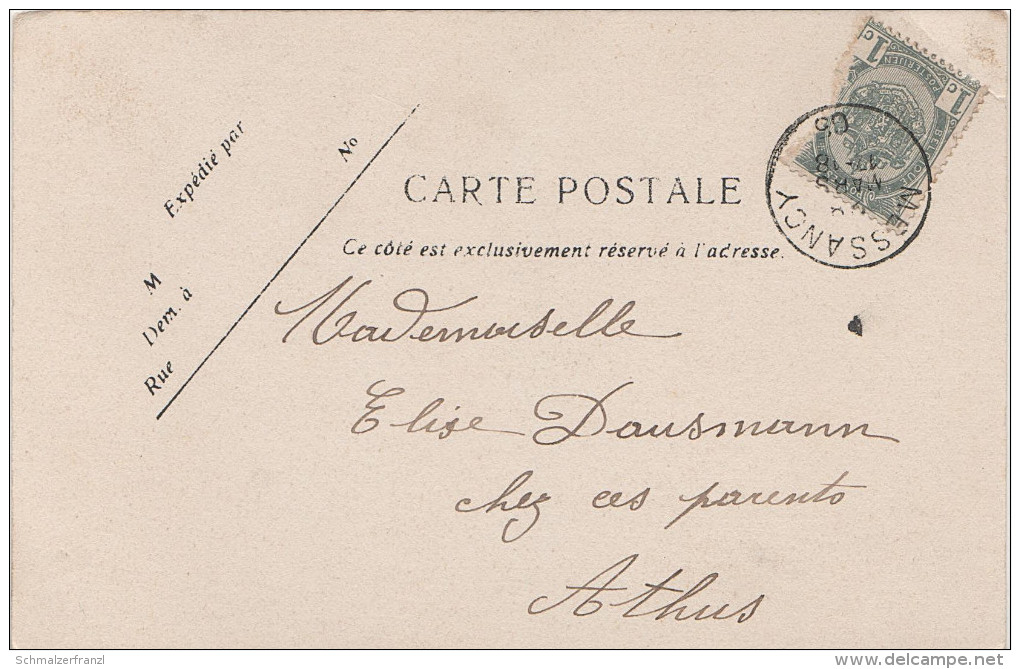 Expédié par
No
M
Dem. à
Rue
CARTE POSTALE
Ce côté est exclusivement réservé à l'adresse.
1c
1c
POSTERIJEN
MESSANCY
MARS
Mademoiselle
Elise Dausmann
chez ces parents
Athus
Schmalzerfranzl
delcampe.net